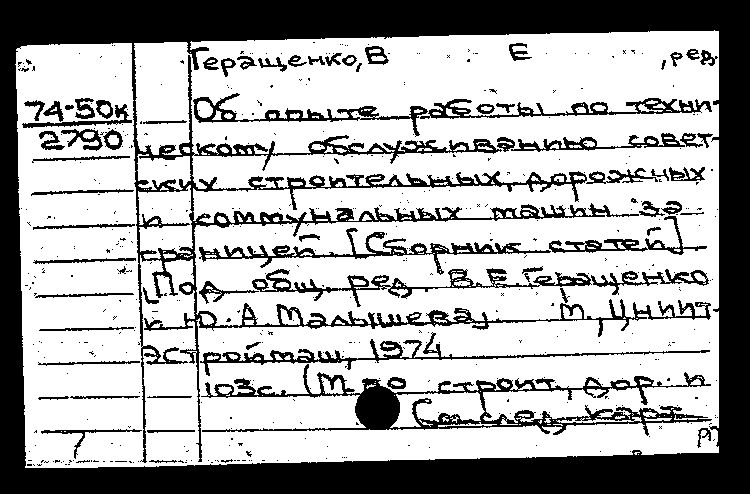 Геращенко, В Е , ред.
74-50к
2790
Об опыте работы по техни-
ческому обслуживанию совет-
ских строительных, дорожных
и коммунальных машин за
границей. [Сборник статей]
[Под общ. ред. В. Е. Геращенко
и Ю. А. Малышева]. М., ЦНИИТ-
ЭСтроймаш, 1974.
103с. (М-во строит., дор. и
См. след. карт.
7